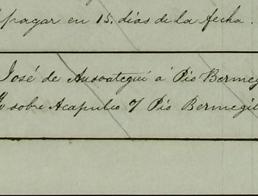 pagar en 15. días de la fecha.
José de Ausoategui á Pio Bermeg
sobre Acapulco 7 Pio Bermegil